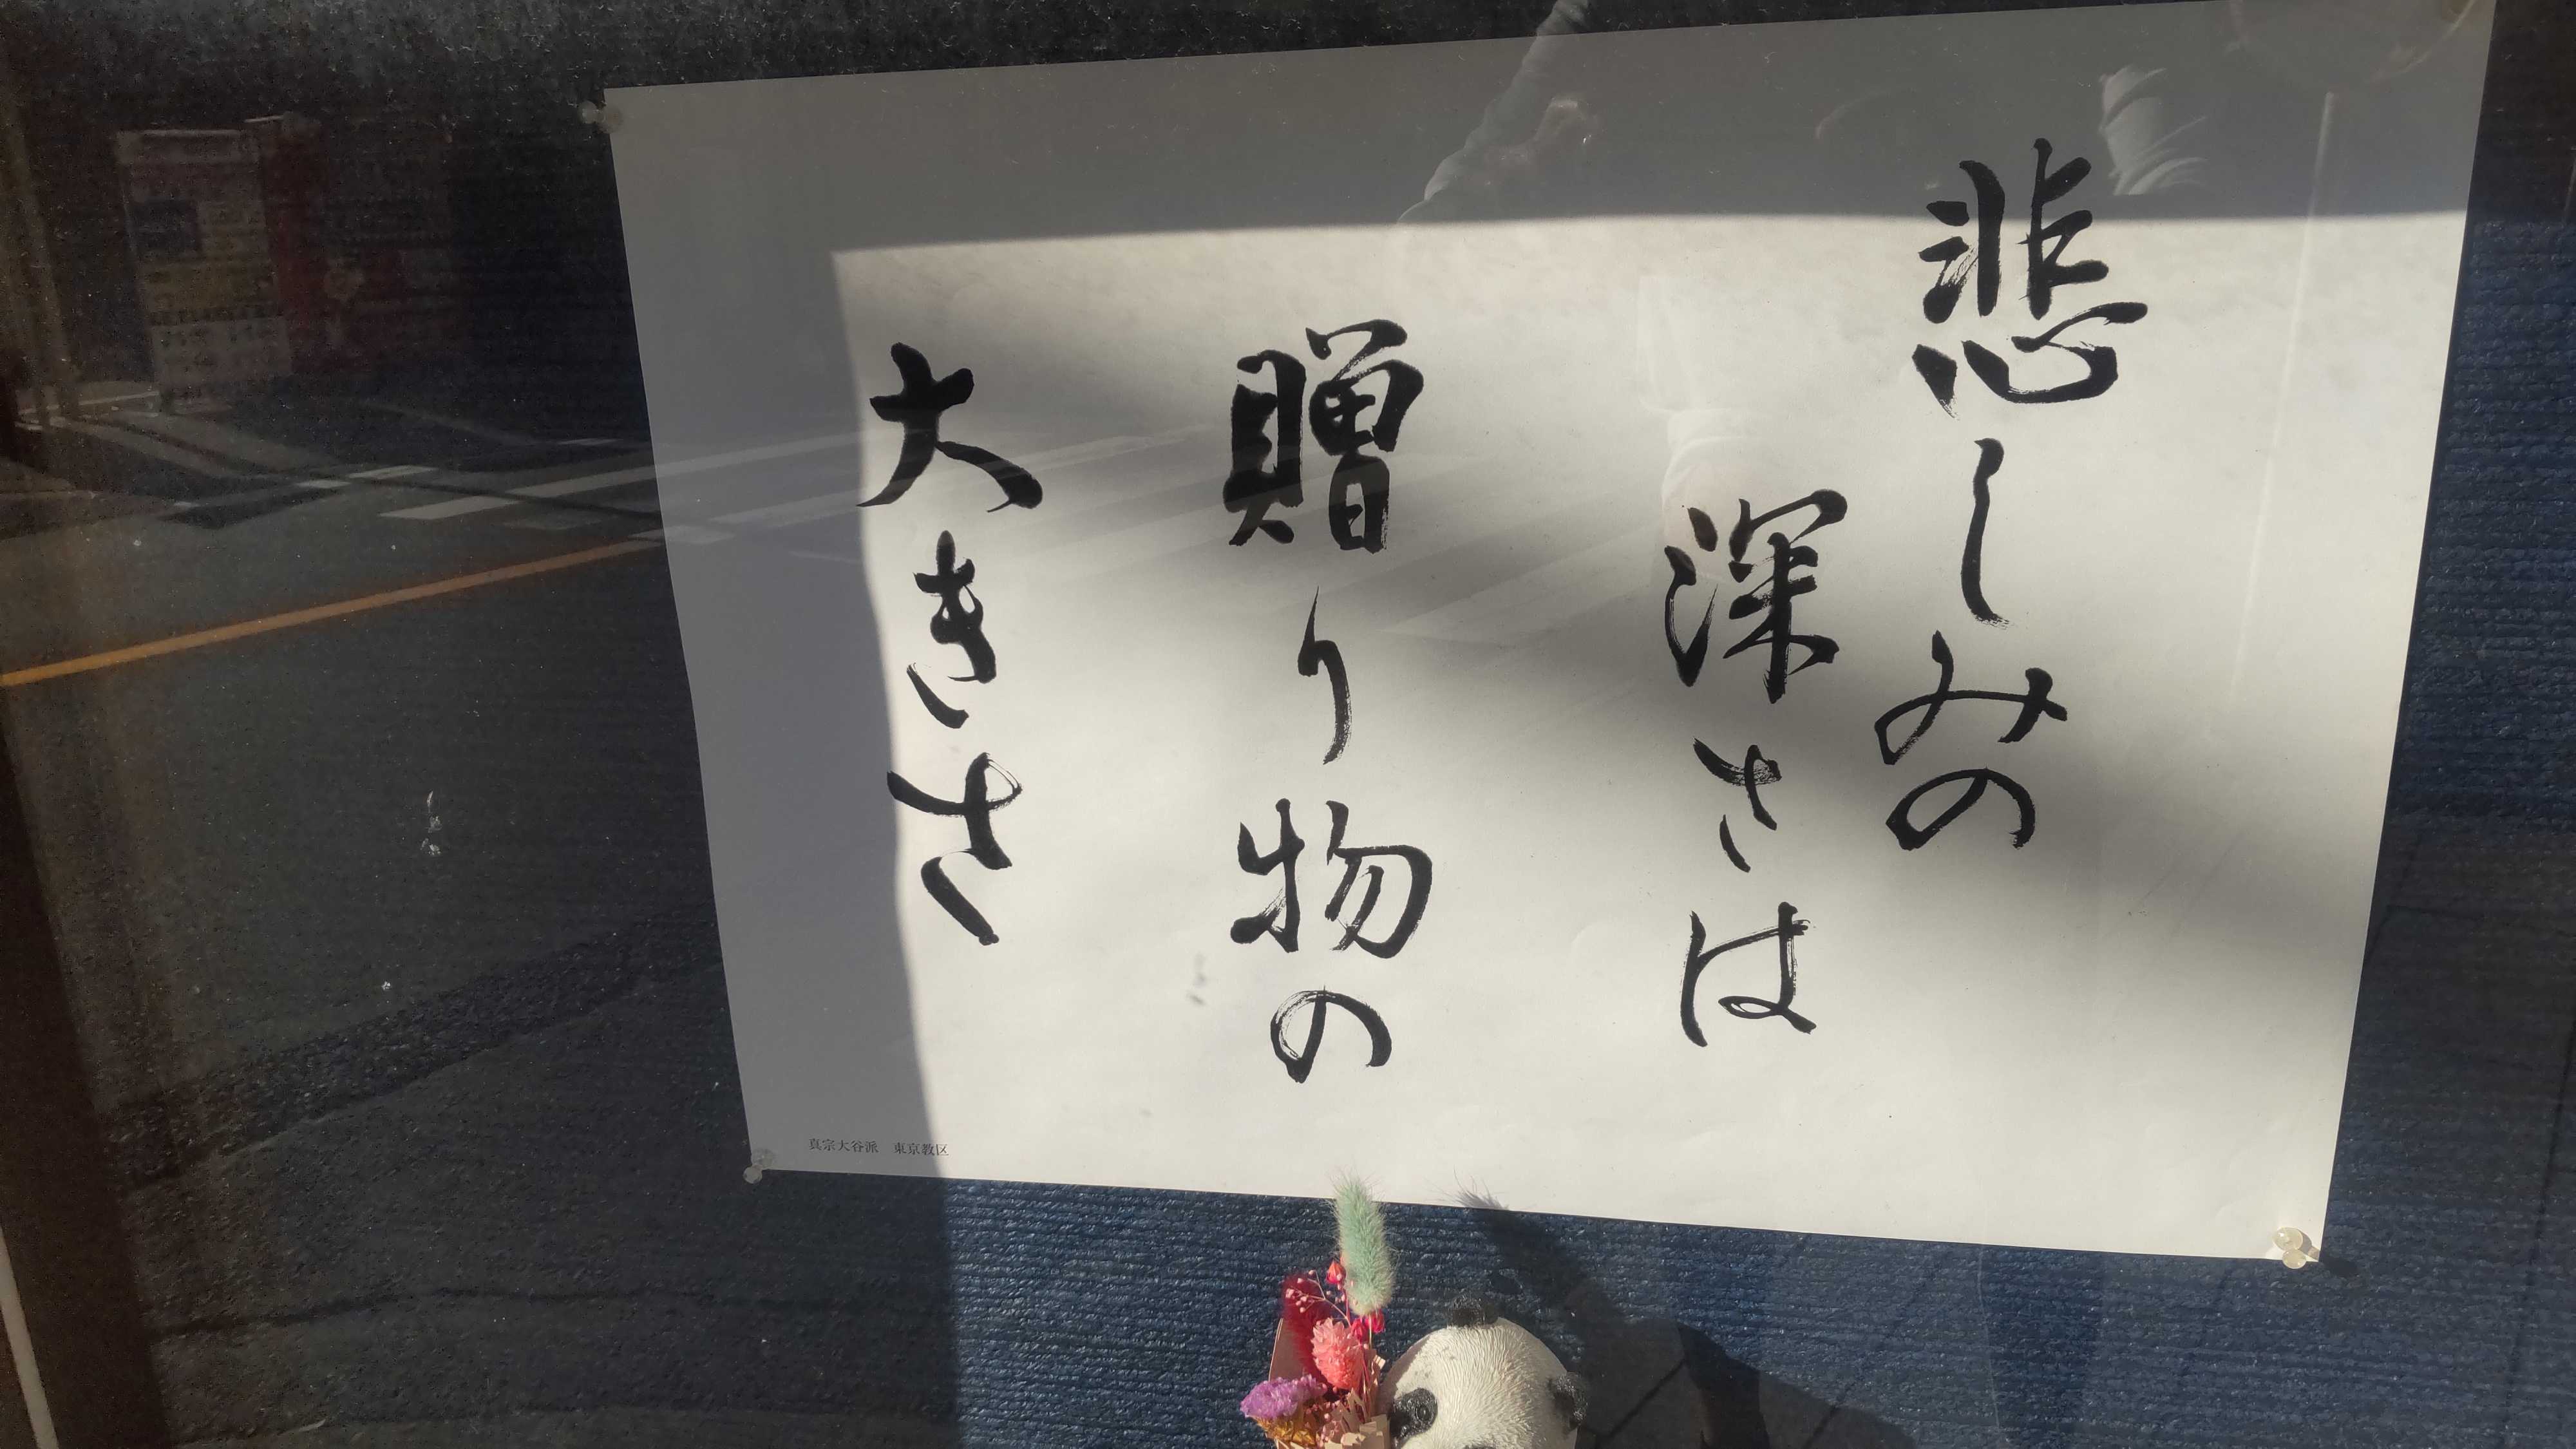 悲しみの
深さは
贈り物の
大きさ
真宗大谷派　東京教区